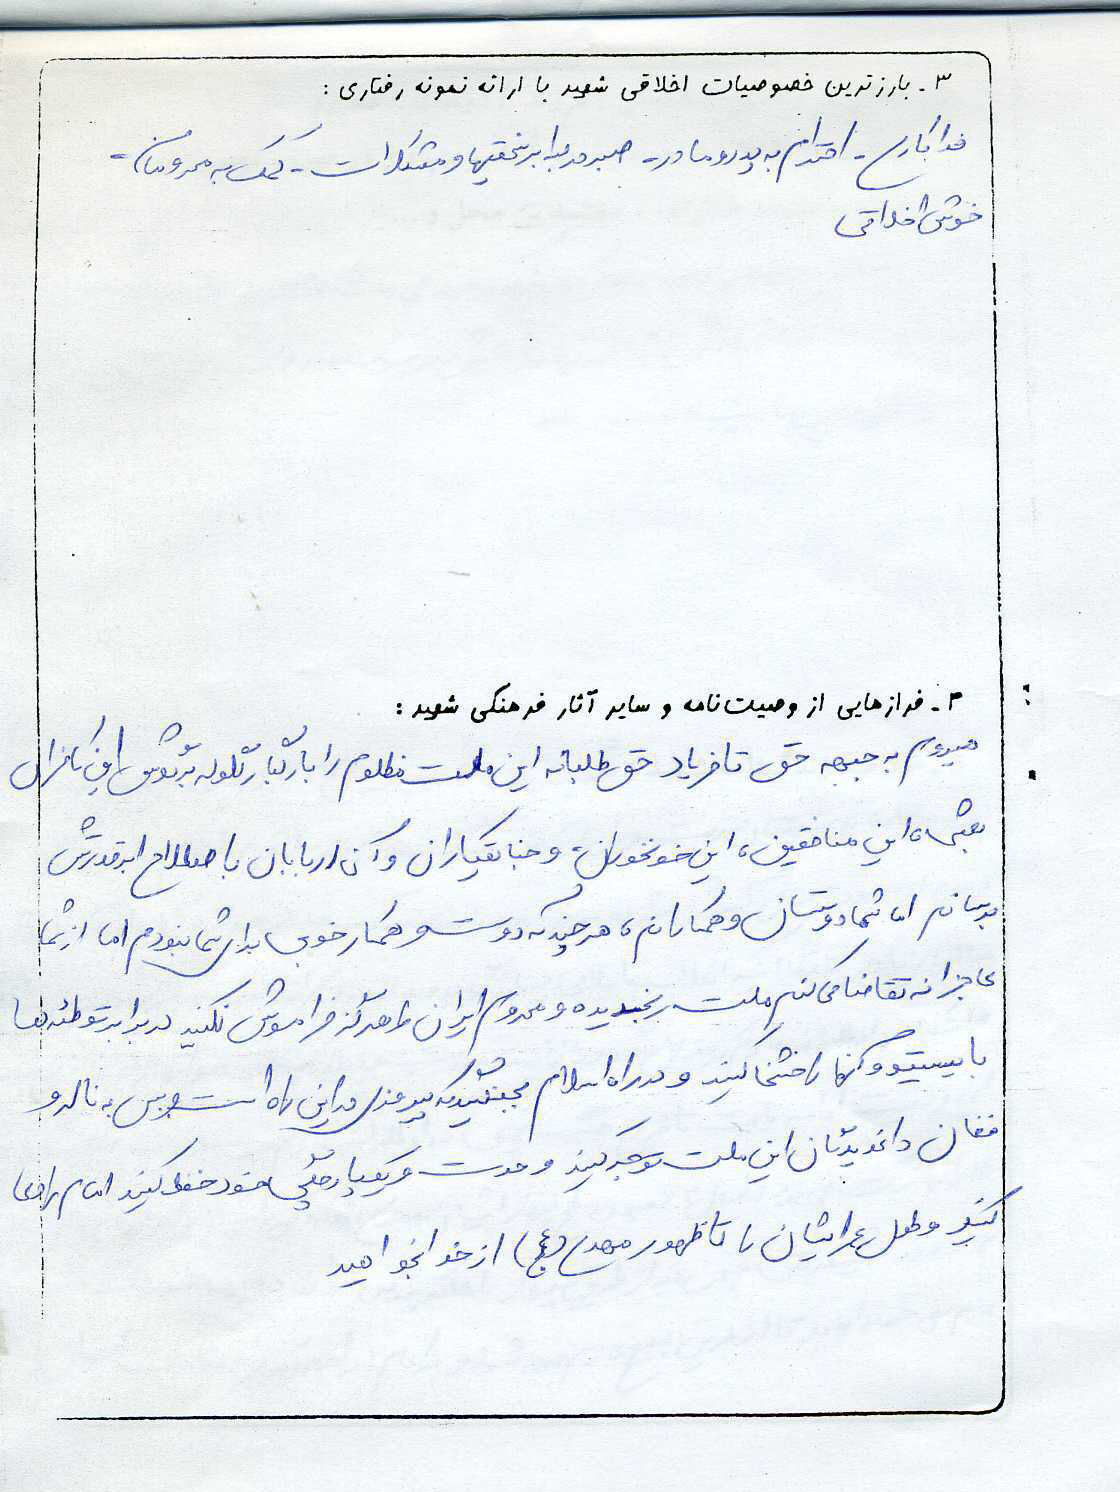 ۳ـ بارزترین خصوصیات اخلاقی شهید با ارائه نمونه رفتاری :
فداکاری - احترام به پدر و مادر - صبر در برابر سختیها و مشکلات - کمک به محرومان -
خوش اخلاقی
۴ـ فرازهایی از وصیت‌نامه و سایر آثار فرهنگی شهید :
میروم به جبهه حق تا فریاد حق طلبانه این ملت مظلوم را با رگبار گلوله بر گوش این کافران
بعثی، این منافقین، این خونخواران، و جنایتکاران و آن اربابان باصطلاح ابرقدرتش
برسانم اما شما دوستان و همکارانم، هرچند که دوست و همکار خوبی برای شما نبودم اما از شما
عاجزانه تقاضا می کنم ملت رنجدیده و محروم ایران را هرگز فراموش نکنید در برابر توطئه ها
بایستید و آنها را خنثی کنید و در راه اسلام بجنگید که پیروزی در این راه است و بس به ناله و
فغان داغدیدگان این ملت توجه کنید وحدت و یکپارچگی خود حفظ کنید امام را دعا
کنید و طول عمر ایشان را تا ظهور مهدی (عج) از خدا بخواهید